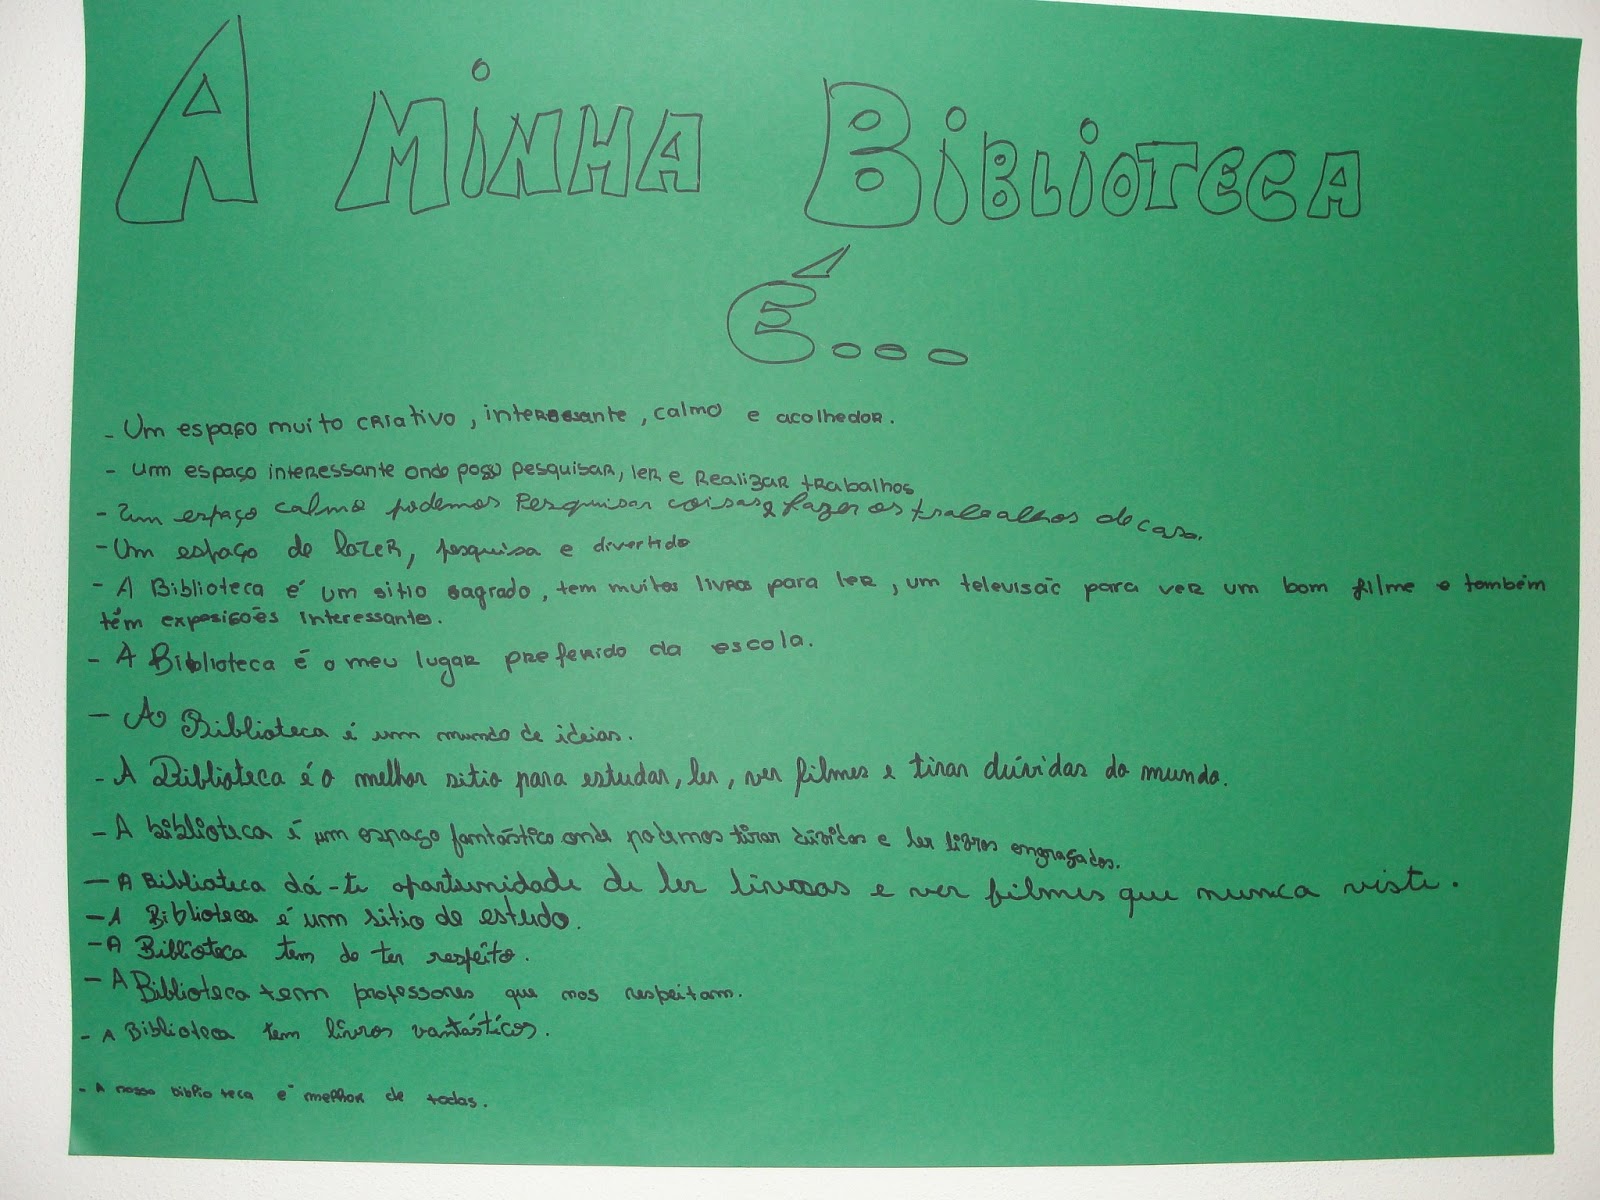 A MINHA BIBLIOTECA
É...
- Um espaço muito criativo, interessante, calmo e acolhedor.
- um espaço interessante onde posso pesquisar, ler e Realizar trabalhos
- Um espaço calmo podemos Pesquisar coisas e fazer os trabealhos de casa.
- Um espaço de lazer, pesquisa e divertido
- A Biblioteca é um sitio sagrado, tem muitos livros para ler, um televisão para ver um bom filme e também
têm exposições interessantes.
- A Biblioteca é o meu lugar preferido da escola.
- A Biblioteca é um mundo de ideias.
- A Biblioteca é o melhor sitio para estudar, ler, ver filmes e tirar dúvidas do mundo.
- A biblioteca é um espaço fantástico onde podemos tirar dúvidas e ler livros engraçados.
- A Biblioteca dá-te oportunidade de ler e ver filmes que nunca viste.
- A Biblioteca é um sitio de estudo.
- A Biblioteca tem de ter respeito.
- A Biblioteca tem professores que nos respeitam.
- A Biblioteca tem livros vantásticos.
- A nossa biblioteca é melhor de todas.